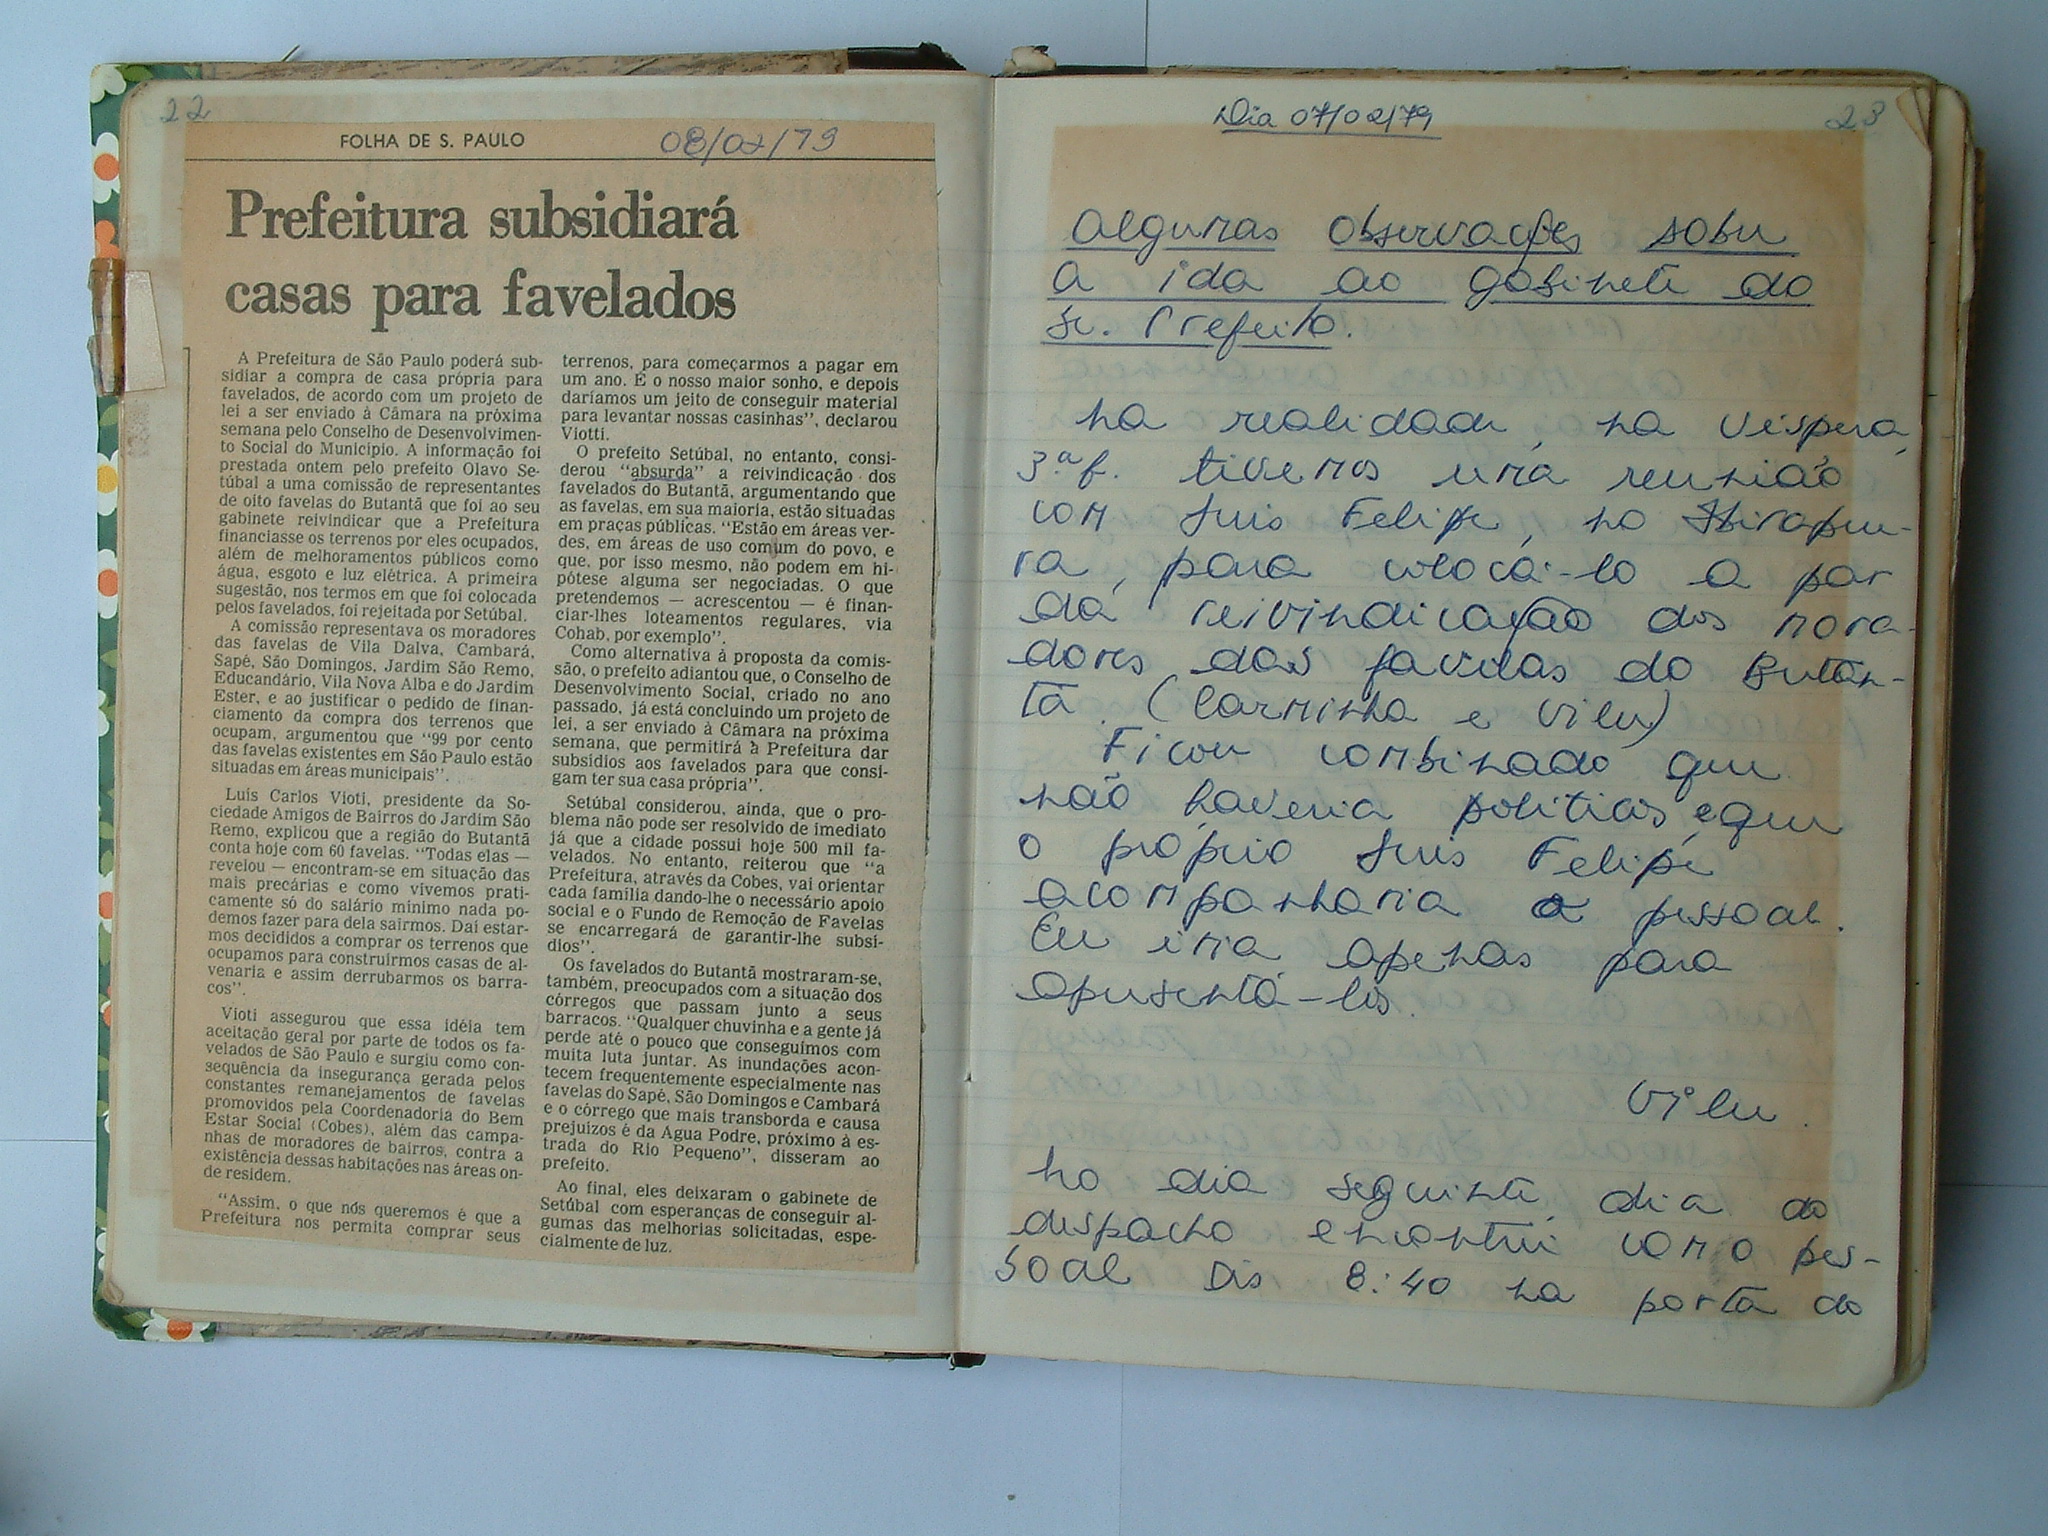 22
FOLHA DE S. PAULO
08/02/79
Prefeitura subsidiará
casas para favelados
A Prefeitura de São Paulo poderá sub-
sidiar a compra de casa própria para
favelados, de acordo com um projeto de
lei a ser enviado à Câmara na próxima
semana pelo Conselho de Desenvolvimen-
to Social do Município. A informação foi
prestada ontem pelo prefeito Olavo Se-
túbal a uma comissão de representantes
de oito favelas do Butantã que foi ao seu
gabinete reivindicar que a Prefeitura
financiasse os terrenos por eles ocupados,
além de melhoramentos públicos como
água, esgoto e luz elétrica. A primeira
sugestão, nos termos em que foi colocada
pelos favelados, foi rejeitada por Setúbal.
A comissão representava os moradores
das favelas de Vila Dalva, Cambará,
Sapé, São Domingos, Jardim São Remo,
Educandário, Vila Nova Alba e do Jardim
Ester, e ao justificar o pedido de finan-
ciamento da compra dos terrenos que
ocupam, argumentou que "99 por cento
das favelas existentes em São Paulo estão
situadas em áreas municipais".
Luís Carlos Vioti, presidente da So-
ciedade Amigos de Bairros do Jardim São
Remo, explicou que a região do Butantã
conta hoje com 60 favelas. "Todas elas —
revelou — encontram-se em situação das
mais precárias e como vivemos prati-
camente só do salário mínimo nada po-
demos fazer para dela sairmos. Daí estar-
mos decididos a comprar os terrenos que
ocupamos para construirmos casas de al-
venaria e assim derrubarmos os barra-
cos".
Vioti assegurou que essa idéia tem
aceitação geral por parte de todos os fa-
velados de São Paulo e surgiu como con-
sequência da insegurança gerada pelos
constantes remanejamentos de favelas
promovidos pela Coordenadoria do Bem
Estar Social (Cobes), além das campa-
nhas de moradores de bairros, contra a
existência dessas habitações nas áreas on-
de residem.
"Assim, o que nós queremos é que a
Prefeitura nos permita comprar seus
terrenos, para começarmos a pagar em
um ano. É o nosso maior sonho, e depois
daríamos um jeito de conseguir material
para levantar nossas casinhas", declarou
Viotti.
O prefeito Setúbal, no entanto, consi-
derou "absurda" a reivindicação dos
favelados do Butantã, argumentando que
as favelas, em sua maioria, estão situadas
em praças públicas. "Estão em áreas ver-
des, em áreas de uso comum do povo, e
que, por isso mesmo, não podem em hi-
pótese alguma ser negociadas. O que
pretendemos — acrescentou — é finan-
ciar-lhes loteamentos regulares, via
Cohab, por exemplo".
Como alternativa à proposta da comis-
são, o prefeito adiantou que, o Conselho de
Desenvolvimento Social, criado no ano
passado, já está concluindo um projeto de
lei, a ser enviado à Câmara na próxima
semana, que permitirá à Prefeitura dar
subsídios aos favelados para que consi-
gam ter sua casa própria".
Setúbal considerou, ainda, que o pro-
blema não pode ser resolvido de imediato
já que a cidade possui hoje 500 mil fa-
velados. No entanto, reiterou que "a
Prefeitura, através da Cobes, vai orientar
cada família dando-lhe o necessário apoio
social e o Fundo de Remoção de Favelas
se encarregará de garantir-lhe subsí-
dios".
Os favelados do Butantã mostraram-se,
também, preocupados com a situação dos
córregos que passam junto a seus
barracos. "Qualquer chuvinha e a gente já
perde até o pouco que conseguimos com
muita luta juntar. As inundações acon-
tecem frequentemente especialmente nas
favelas do Sapé, São Domingos e Cambará
e o córrego que mais transborda e causa
prejuízos é da Água Podre, próximo à es-
trada do Rio Pequeno", disseram ao
prefeito.
Ao final, eles deixaram o gabinete de
Setúbal com esperanças de conseguir al-
gumas das melhorias solicitadas, espe-
cialmente de luz.
Dia 07/02/79
23
Algumas observações sobre
a ida ao gabinete do
Sr. Prefeito.
Na realidade, na véspera,
3ª f. tivemos uma reunião
com Luis Felipe, no Ibirapue-
ra, para colocá-lo a par
da reivindicação dos mora-
dores das favelas do Butan-
tã. (Carminha e Vilu)
Ficou combinado que
não haveria políticos e que
o próprio Luis Felipe
acompanharia o pessoal.
Eu iria apenas para
apresentá-los.
Vilu.
No dia seguinte, dia do
despacho encontrei com o pes-
soal às 8:40 na porta do